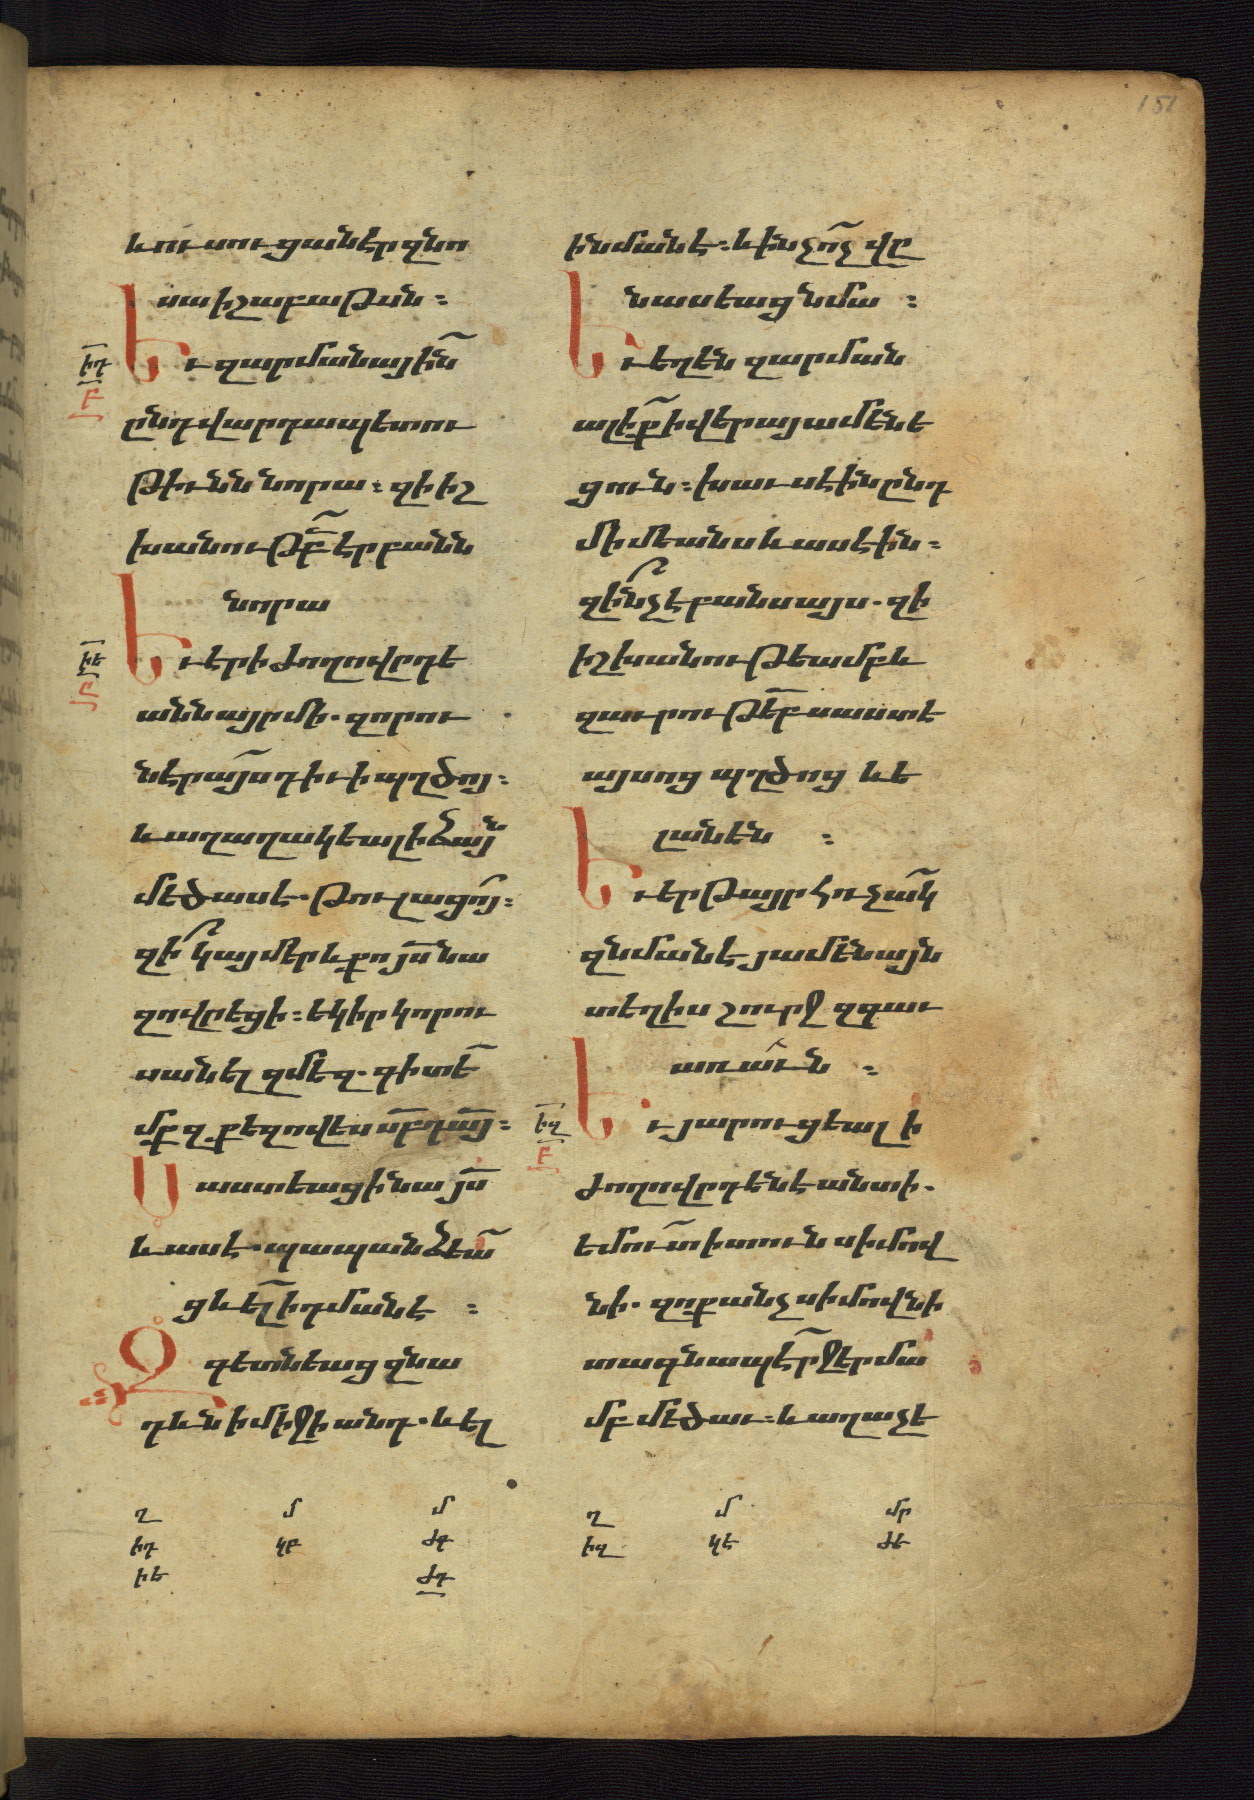 151
և ուսուցանէր զնո
սա ի շաբաթսն ։
Եւ զարմանային
իդ
բ
ընդ վարդապետու
թիւնն նորա ։ զի իշ
խանութբ էր բանն
նորա
Եւ էր ի ժողովրդե
իե
ը
անն այր մի . զորոյ
ներ այս դիւի պղծոյ ։
և աղաղակեաց ի ձայն
մեծ ասէ . թոյլ ացոյ ։
զի՞ կայ մեր և քո յս նա
զովրեցի ։ եկիր կորու
սանել զմեզ . գիտե
մք զքեզ ով ես սբդ այ ։
Սաստեաց ի նա յս
և ասէ . պապանձեա
ց և ել ի դմանէ ։
Զգետնեաց զնա
դևն ի միջի անդ . և ել
ի նմանէ ։ և ինչ ոչ վը
նասեաց նմա ։
Եւ եղեն զարման
ալիք ի վերայ ամենե
ցուն ։ խաւսէին ընդ
միմեանս և ասէին ։
զի՞նչ է բանս այս . զի
իշխանութեամբ և
զաւրութեբ սաստէ
այսոց պղծոց և ե
լանեն ։
Եւ երթայր հռչակ
զնմանէ յամենայն
տեղիս շուրջ զգաւ
առաւն ։
Եւ յարուցեալ ի
իզ
բ
ժողովրդենէ անտի .
եմուտ ի տուն սիմով
նի . զոքանչ սիմովնի
տագնապէր ջերմա
մբ մեծաւ ։ և աղաչե
ղ մ մ
իդ կբ ժգ
իե ժդ
ղ մ մր
իզ կէ ժե